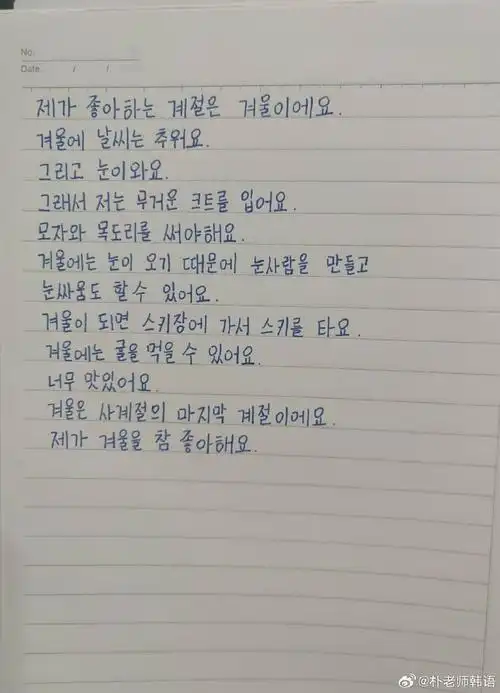 No.
Date / /
제가 좋아하는 계절은 겨울이에요.
겨울에 날씨는 추워요.
그리고 눈이와요.
그래서 저는 무거운 코트를 입어요.
모자와 목도리를 써야해요.
겨울에는 눈이 오기 때문에 눈사람을 만들고
눈싸움도 할수 있어요.
겨울이 되면 스키장에 가서 스키를 타요.
겨울에는 귤을 먹을 수 있어요.
너무 맛있어요.
겨울은 사계절의 마지막 계절이에요.
제가 겨울을 참 좋아해요.
@朴老师韩语